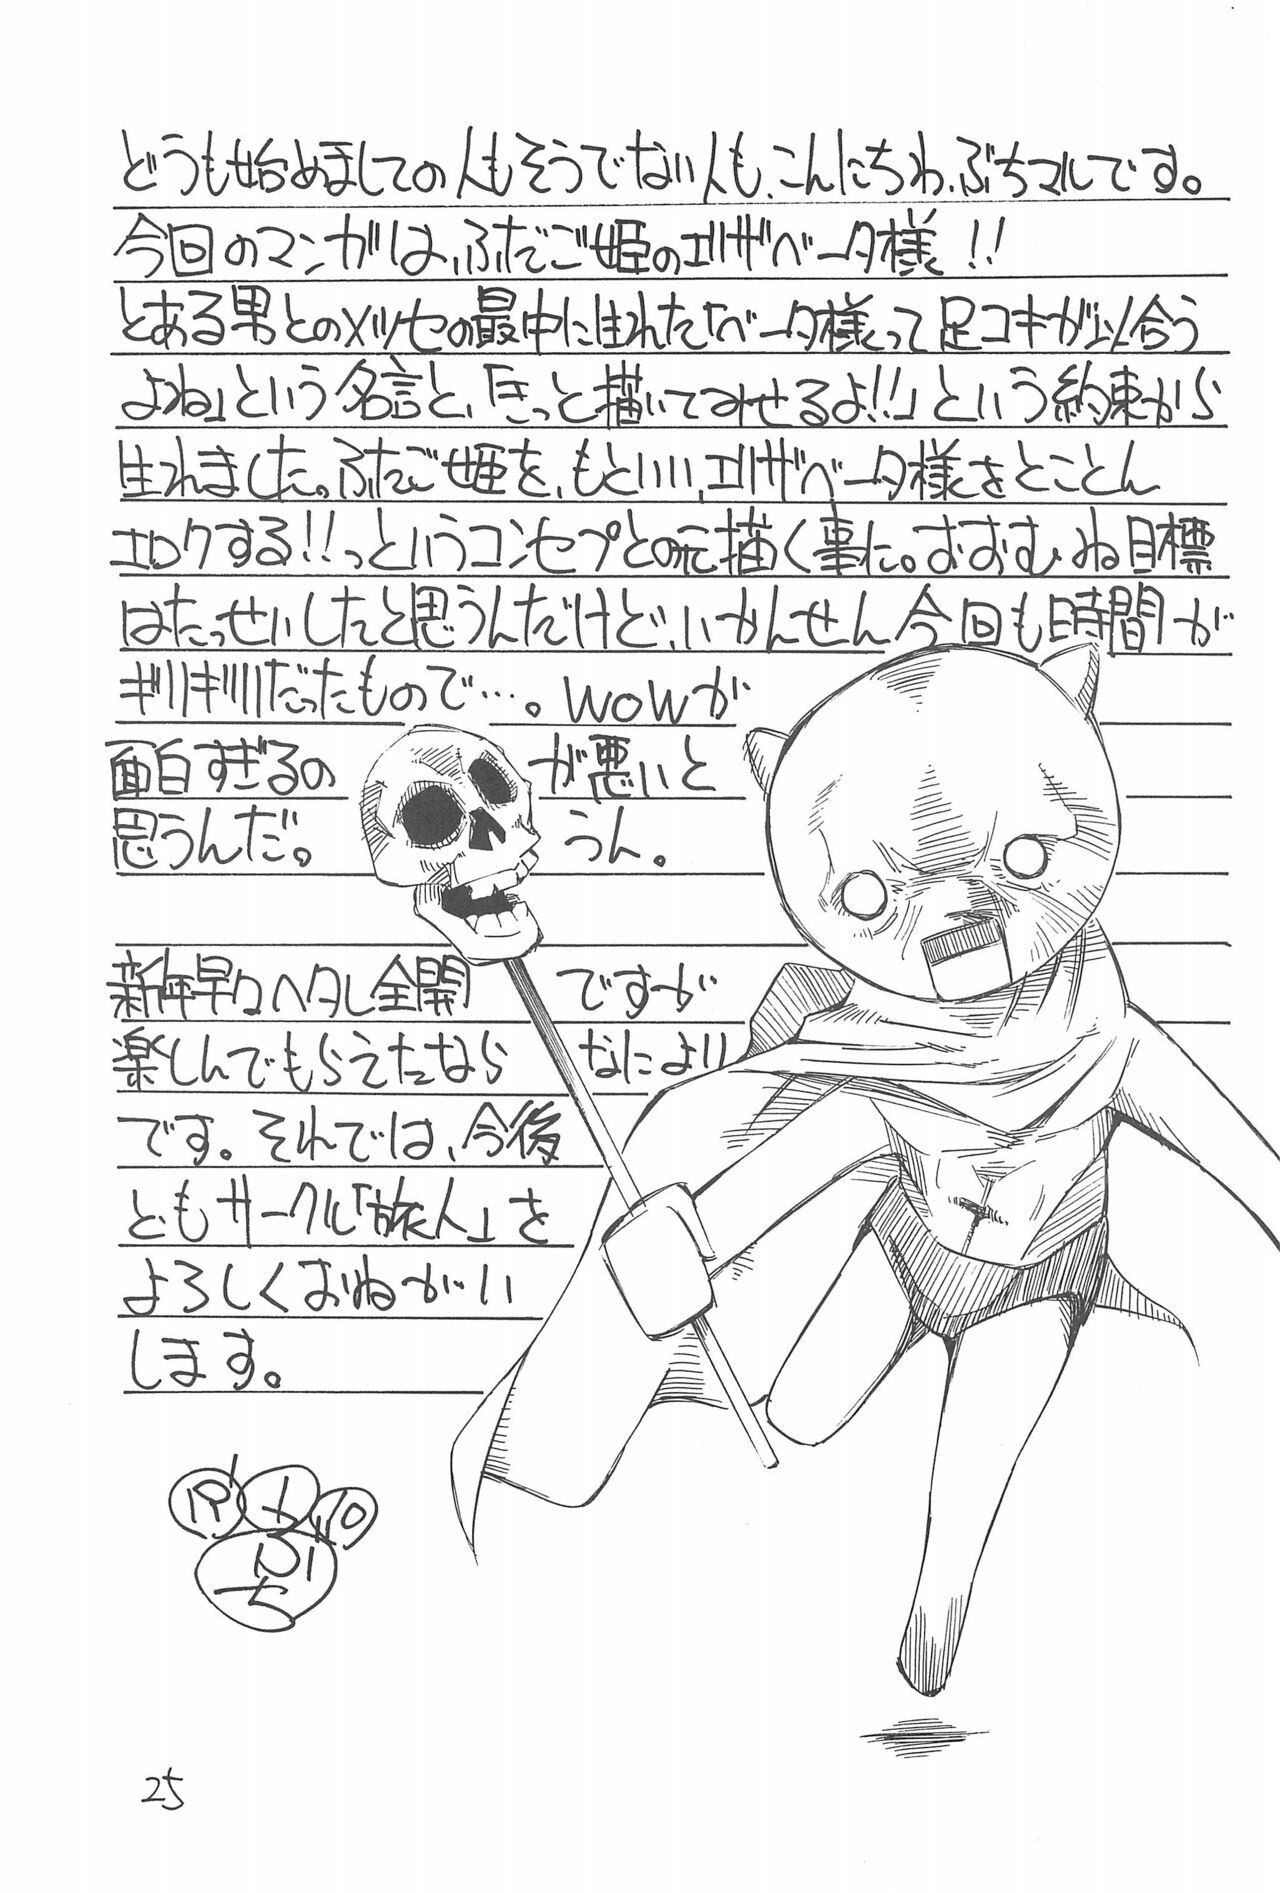 どうも始めましての人もそうでない人も、こんにちわ、ぶちマルです。
今回のマンガは、ふたご姫のエリザベータ様!!
とある男とのメッセの最中に生れた「ベータ様って足コキが似合う
よね」という名言と、「きっと描いてみせるよ!!」という約束から
生れました。ふたご姫を、もといい、エリザベータ様をとことん
エロクする!!っというコンセプトの元描く事に。おおむね目標
はたっせいしたと思うんだけど、いかんせん今回も時間が
ギリギリだったもので…。WOWが
面白すぎるのが悪いと
思うんだ。うん。
新年早々ヘタレ全開ですが
楽しんでもらえたならなにより
です。それでは、今後
ともサークル「旅人」を
よろしくおねがい
します。
ぶち
25